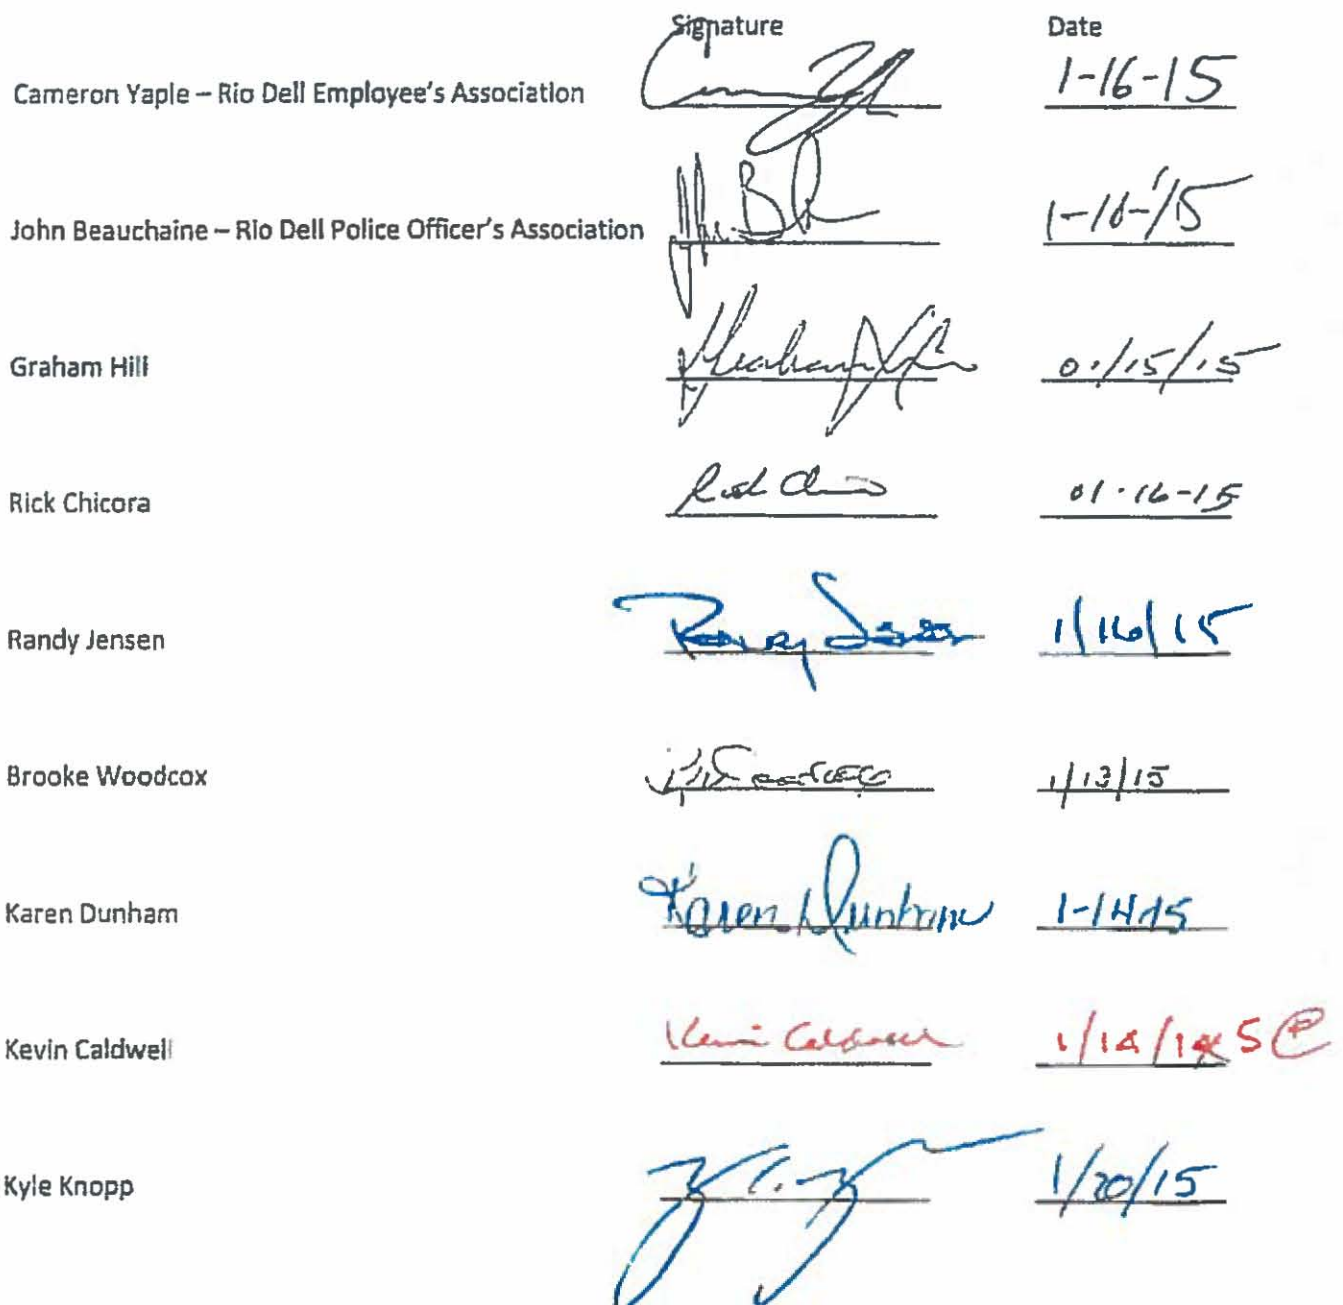 Signature Date
Cameron Yaple – Rio Dell Employee's Association 1-16-15
John Beauchaine – Rio Dell Police Officer's Association
Graham Hill Graham Hill 01/15/15
Rick Chicora 01-16-15
Randy Jensen Randy Jensen 1/16/15
Brooke Woodcox B Woodcox 1/13/15
Karen Dunham Karen Dunham 1-14-15
Kevin Caldwell Kevin Caldwell 1/14/14 5
Kyle Knopp 1/20/15